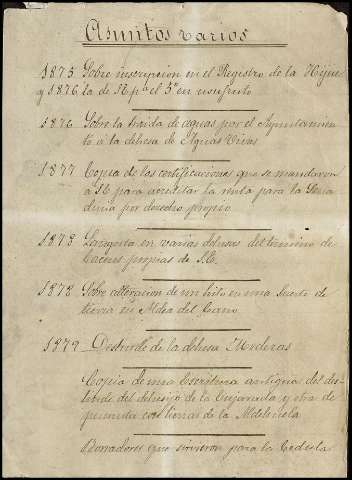 Asuntos varios
1875 Sobre inscripcion en el Registro de la Higue
y 1876 la de Sta pa el 5º en usufruto
1876 Sobre la traida de aguas por el Ayuntamien
to a la dehesa de Aguas Vivas
1877 Copia de las certificaciones que se mandaron
a S.E. para acreditar la renta para la Sena
duria por derecho propio
1878 Langosta en varias dehesas del termino de
Caceres propias de S.E.
1878 Sobre alteracion de un hito en una suerte de
tierra en Aldea del Cano
1879 Deslinde de la dehesa Moheras
Copia de una Escritura antigua del des
linde del dehesa de la y otra de
permuta con tierras de la Aldihuela
Borradores que sirvieron para la Cedula